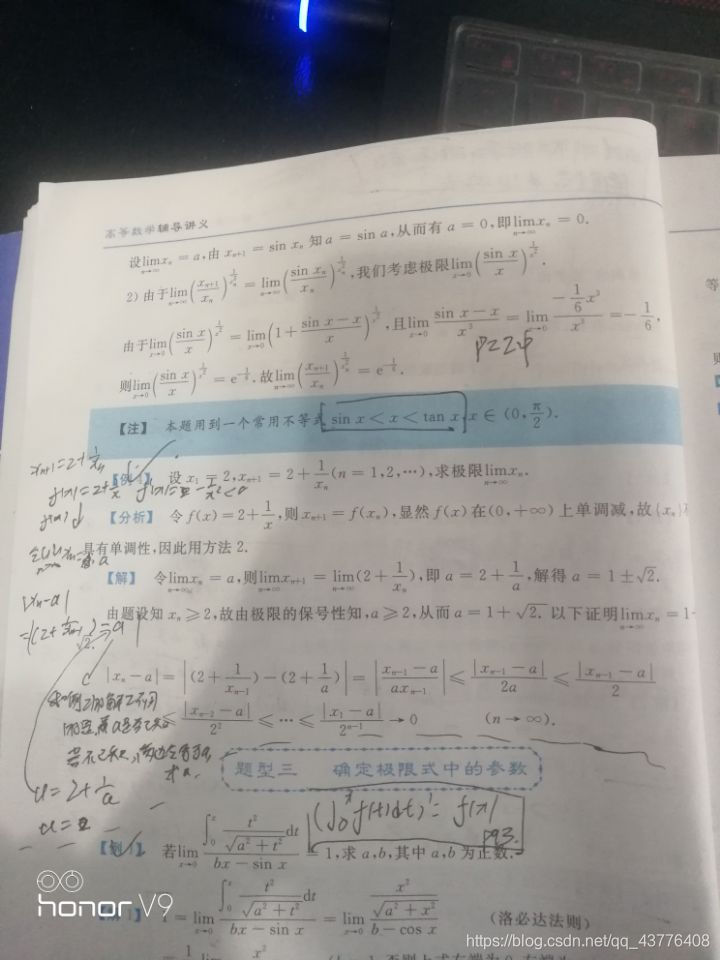 高等数学辅导讲义
设lim x_n = a,由 x_{n+1} = sin x_n 知 a = sin a,从而有 a = 0,即 lim x_n = 0.
n→∞ n→∞
2) 由于 lim_{n→∞} (x_{n+1}/x_n)^{1/x_n^2} = lim_{n→∞} (sin x_n/x_n)^{1/x_n^2},我们考虑极限 lim_{x→0} (sin x/x)^{1/x^2}.
由于 lim_{x→0} (sin x/x)^{1/x^2} = lim_{x→0} (1 + (sin x − x)/x)^{1/x^2},且 lim_{x→0} (sin x − x)/x^3 = lim_{x→0} (−1/6 x^3)/x^3 = −1/6,
则 lim_{x→0} (sin x/x)^{1/x^2} = e^{−1/6}.故 lim_{n→∞} (x_{n+1}/x_n)^{1/x_n^2} = e^{−1/6}.
【注】 本题用到一个常用不等式 sin x < x < tan x, x ∈ (0, π/2).
x_{n+1} = 2 + 1/x_n
【例 】 设 x_1 = 2, x_{n+1} = 2 + 1/x_n (n = 1,2,⋯),求极限 lim_{n→∞} x_n.
f(x) = 2 + 1/x
【分析】 令 f(x) = 2 + 1/x,则 x_{n+1} = f(x_n),显然 f(x) 在 (0, +∞) 上单调减,故 {x_n} 不
具有单调性,因此用方法 2.
【解】 令 lim_{n→∞} x_n = a,则 lim_{n→∞} x_{n+1} = lim_{n→∞} (2 + 1/x_n),即 a = 2 + 1/a,解得 a = 1 ± √2.
|x_n − a|
由题设知 x_n ⩾ 2,故由极限的保号性知, a ⩾ 2,从而 a = 1 + √2. 以下证明 lim_{n→∞} x_n = 1
|x_n − a| = |(2 + 1/x_{n−1}) − (2 + 1/a)| = |(x_{n−1} − a)/(ax_{n−1})| ⩽ |x_{n−1} − a|/2a ⩽ |x_{n−1} − a|/2
⩽ |x_{n−2} − a|/2^2 ⩽ ⋯ ⩽ |x_1 − a|/2^{n−1} → 0 (n → ∞).
题型三 确定极限式中的参数
a = 2 + 1/a
(∫_0^x f(t)dt)' = f(x)
P93.
【例1】 若 lim_{x→0} (∫_0^x t^2/√(a^2 + t^2) dt)/(bx − sin x) = 1,求 a,b,其中 a,b 为正数.
= lim_{x→0} (∫_0^x t^2/√(a^2 + t^2) dt)/(bx − sin x) = lim_{x→0} (x^2/√(a^2 + x^2))/(b − cos x) (洛必达法则)
honor V9
https://blog.csdn.net/qq_43776408